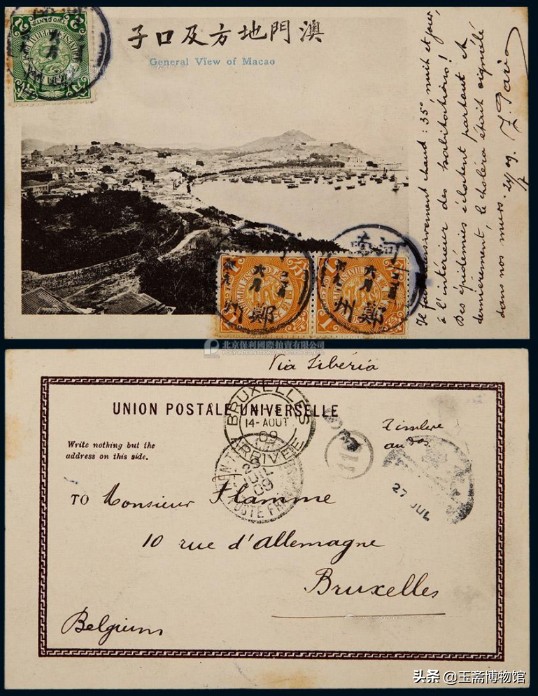 澳門地方及口子
General View of Macao
Il fait énervement chaud : 35° nuit et jour,
à l'intérieur des habitations !
Des épidémies éclatent partout et
dernièrement, le choléra était signalé
dans nos murs.
河南
鄭州
鄭州
北京保利國際拍賣有限公司
Via Sibéria
UNION POSTALE UNIVERSELLE
Write nothing but the
address on this side.
BRUXELLES
14-AOUT
09
ARRIVÉE
POSTE FR
Timbre
27 JUL
TO Monsieur Flamme
10 rue d'Allemagne
Bruxelles
Belgium
头条 @玉斋博物馆